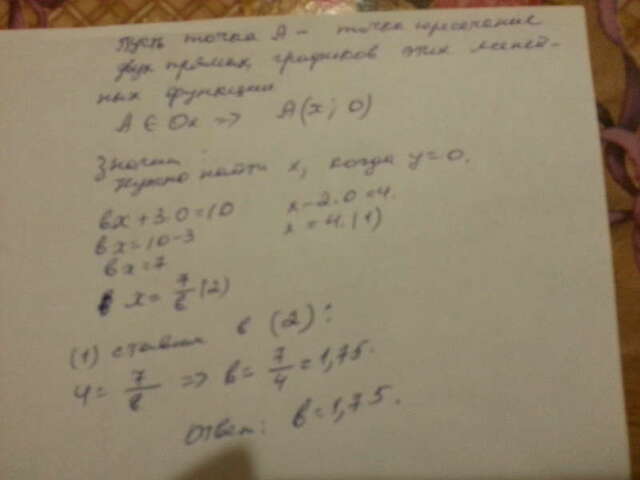 Пусть точка А - точка пересечение
двух прямых, графиков этих линей-
ных функции
A ∈ Ox => A(x; 0)
Значит
нужно найти x, когда y=0.
вx+3·0=10 x-2·0=4.
вx=10-3 x=4.(1)
вx=7
x=7/в (2)
(1) ставим в (2):
4=7/в => в=7/4=1,75.
Ответ: в=1,75.